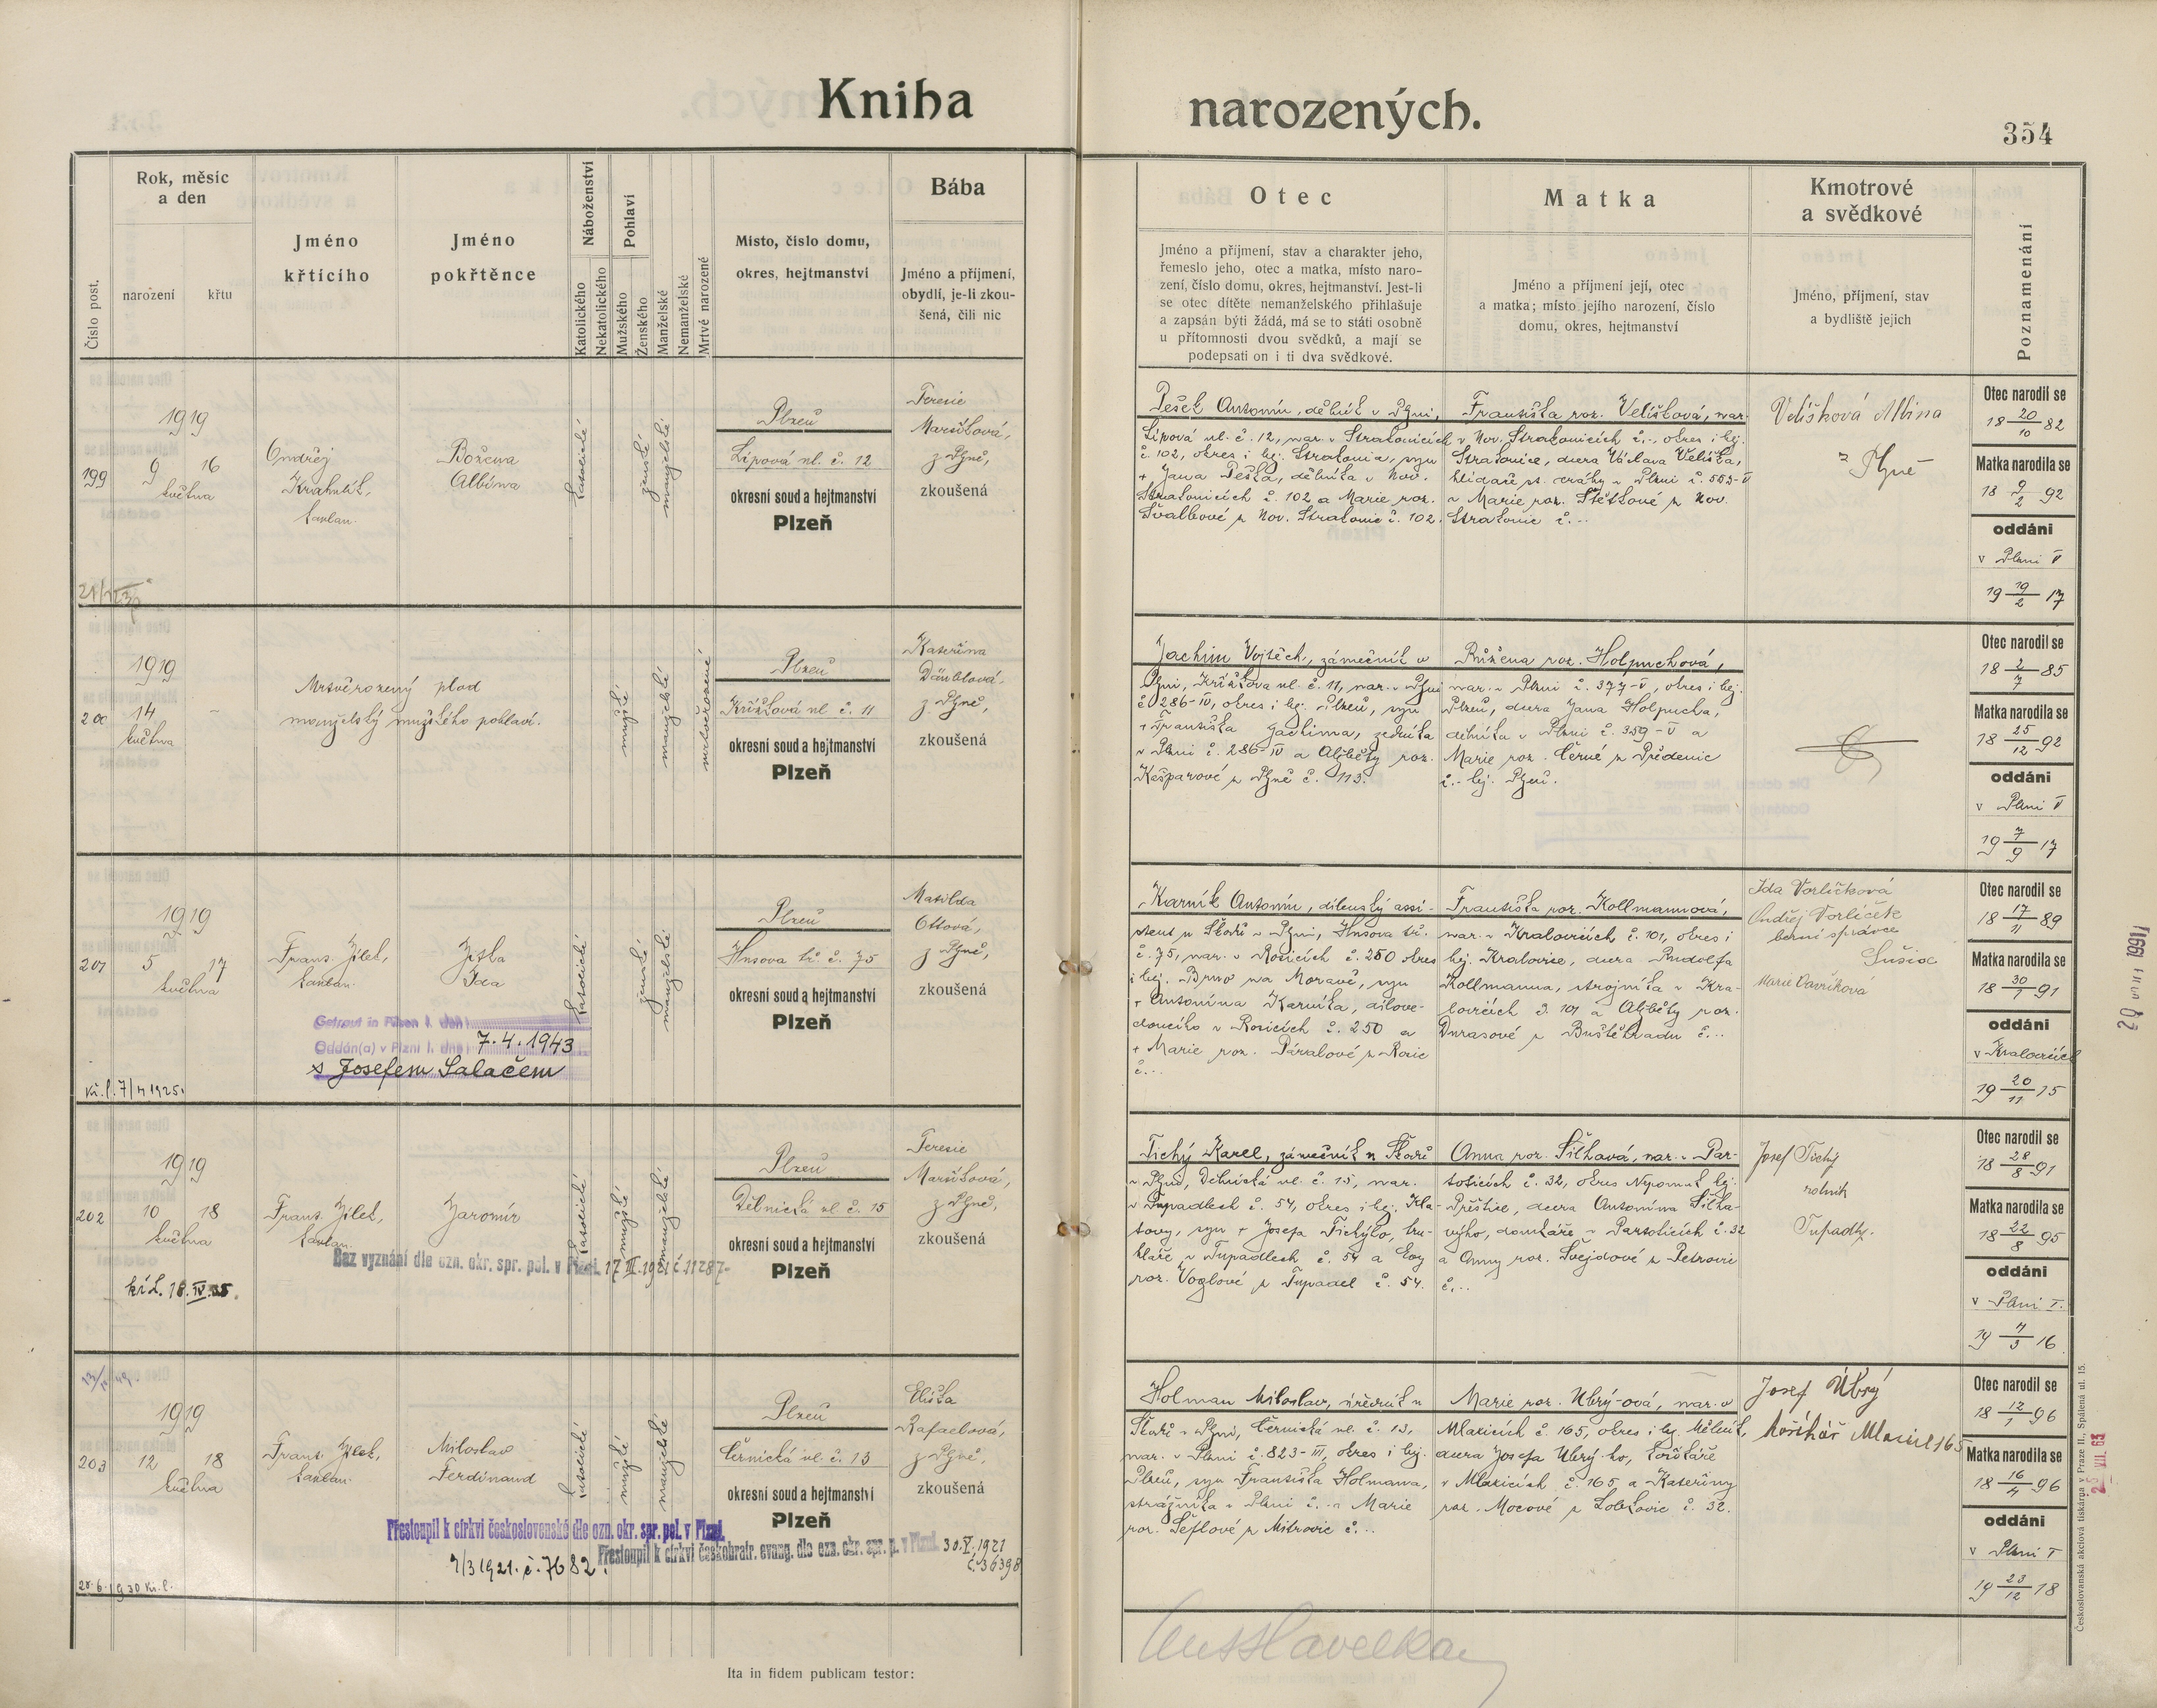 Kniha narozených.
354
Číslo post.
Rok, měsíc
a den
narození
křtu
Jméno
křticího
Jméno
pokřtěnce
Náboženství
Katolického
Nekatolického
Pohlaví
Mužského
Ženského
Manželské
Nemanželské
Mrtvé narozené
Místo, číslo domu,
okres, hejtmanství
Bába
Jméno a příjmení,
obydlí, je-li zkou-
šená, čili nic
Otec
Jméno a příjmení, stav a charakter jeho,
řemeslo jeho, otec a matka, místo naro-
zení, číslo domu, okres, hejtmanství. Jest-li
se otec dítěte nemanželského přihlašuje
a zapsán býti žádá, má se to státi osobně
u přítomnosti dvou svědků, a mají se
podepsati on i ti dva svědkové.
Matka
Jméno a příjmení její, otec
a matka; místo jejího narození, číslo
domu, okres, hejtmanství
Kmotrové
a svědkové
Jméno, příjmení, stav
a bydliště jejich
Poznamenání
199
1919
9 16
května
Ondřej
Krahulík,
kaplan.
Božena
Albína
katolické
ženské
manželské
Plzeň
Lipová ul. č. 12
okresní soud a hejtmanství
Plzeň
Terezie
Maršíková,
z Plzně,
zkoušená
Pešek Antonín, dělník v Plzni,
Lipová ul. č. 12, nar. v Strakonicích
č. 102, okres i hej. Strakonice, syn
+ Jana Peška, dělníka v Nov.
Strakonicích č. 102 a Marie roz.
Švalbové z Nov. Strakonic č. 102.
Františka roz. Velíšková, nar.
v Nov. Strakonicích č.-, okres i hej.
Strakonice, dcera Václava Velíška,
hlídače st. dráhy v Plzni č. 553-V
a Marie roz. Štětkové z Nov.
Strakonic č. ..
Velíšková Albina
z Plzně
Otec narodil se
18 20/10 82
Matka narodila se
18 9/2 92
oddáni
v Plzni V
19 19/2 17
200
1919
14 -
května
Mrtvěrozený plod
manželský mužského pohlaví.
mužské
manželské
mrtvěrozené
Plzeň
Křížková ul. č. 11
okresní soud a hejtmanství
Plzeň
Kateřina
Däublová,
z Plzně,
zkoušená
Jachim Vojtěch, zámečník v
Plzni, Křížkova ul. č. 11, nar. v Plzni
č 286-IV, okres i hej. Plzeň, syn
+ Františka Jachima, zedníka
v Plzni č. 286-IV a Alžběty roz.
Kašparové z Plzně č. 113.
Růžena roz. Holpuchová,
nar. v Plzni č. 377-V, okres i hej.
Plzeň, dcera Jana Holpucha,
dělníka v Plzni č. 359-V a
Marie roz. Černé z Předenic
č.- hej. Plzeň.
Otec narodil se
18 2/7 85
Matka narodila se
18 25/12 92
oddáni
v Plzni V
19 7/9 17
201
1919
5 17
května
Frant. Jílek,
kaplan.
Jiřka
Ida
Getraut in Pilsen I. den
Oddán(a) v Plzni I. dne 7.4.1943
s Josefem Salačem
kř. l. 7/4 1925.
katolické
ženské
manželské
Plzeň
Husova tř. č. 75
okresní soud a hejtmanství
Plzeň
Matilda
Ottová,
z Plzně,
zkoušená
Karník Antonín, dílenský assi-
stent u Škodů v Plzni, Husova tř.
č. 75, nar. v Rosicích č. 250 okres
i hej. Brno na Moravě, syn
+ Antonína Karníka, dílove-
doucího v Rosicích č. 250 a
+ Marie roz. Páralové z Rosic
č...
Františka roz. Kollmannová,
nar. v Kralovicích č. 101, okres i
hej. Kralovice, dcera Rudolfa
Kollmanna, strojníka v Kra-
lovicích č. 101 a Alžběty roz.
Durasové z Buštěhradu č...
Ida Vorlíčková
Ondřej Vorlíček
berní správce
Sušice
Marie Vavříková
Otec narodil se
18 17/11 89
Matka narodila se
18 30/1 91
oddáni
v Kralovicích
19 20/11 15
202
1919
10 18
května
Frant. Jílek,
kaplan.
Jaromír
Bez vyznání dle ozn. okr. spr. pol. v Plzni. 17 II. 1921 č. 11287-
kř. L. 18. IV. 35.
katolické
mužské
manželské
Plzeň
Dělnická ul. č. 15
okresní soud a hejtmanství
Plzeň
Terezie
Maršíková,
z Plzně,
zkoušená
Tichý Karel, zámečník u Škodů
v Plzni, Dělnická ul. č. 15, nar.
v Tupadlech č. 54, okres i hej. Kla-
tovy, syn + Josefa Tichýho, tru-
hláře v Tupadlech č. 54 a Evy
roz. Voglové z Tupadel č. 54.
Anna roz. Šilhavá, nar. v Par-
toticích č. 32, okres Nepomuk hej.
Přeštice, dcera Antonína Šilha-
výho, domkáře v Partoticích č. 32
a Anny roz. Švejdové z Petrovic
č...
Josef Tichý
rolník
Tupadly.
Otec narodil se
18 28/8 91
Matka narodila se
18 22/8 95
oddáni
v Plzni I.
19 4/3 16
203
1919
12 18
května
Frant. Jílek,
kaplan.
Miloslav
Ferdinand
Přestoupil k církvi československé dle ozn. okr. spr. pol. v Plzni.
7/3 1921. č. 7682.
Přestoupil k církvi českobratr. evang. dle ozn. okr. spr. p. v Plzni. 30.X.1921
č. 36398
28.6. 1930 Kř. l.
katolické
mužské
manželské
Plzeň
Černická ul. č. 13
okresní soud a hejtmanství
Plzeň
Eliška
Rafaelová,
z Plzně,
zkoušená
Holman Miloslav, úředník u
Škodů v Plzni, Černická ul. č. 13,
nar. v Plzni č. 823-III, okres i hej.
Plzeň, syn Františka Holmana,
strážníka v Plzni č. - a Marie
roz. Šeflové z Mitrovic č...
Marie roz. Úbrý-ová, nar. v
Mlazicích č. 165, okres i hej. Mělník,
dcera Josefa Úbrý-ho, košíkáře
v Mlazicích č. 165 a Kateřiny
roz. Mocové z Lobkovic č. 32.
Josef Úbrý
košíkář Mlazice 165
Otec narodil se
18 12/1 96
Matka narodila se
18 16/4 96
oddáni
v Plzni I
19 23/12 18
Ita in fidem publicam testor:
Českoslovanská akciová tiskárna v Praze II., Spálená ul. 15.